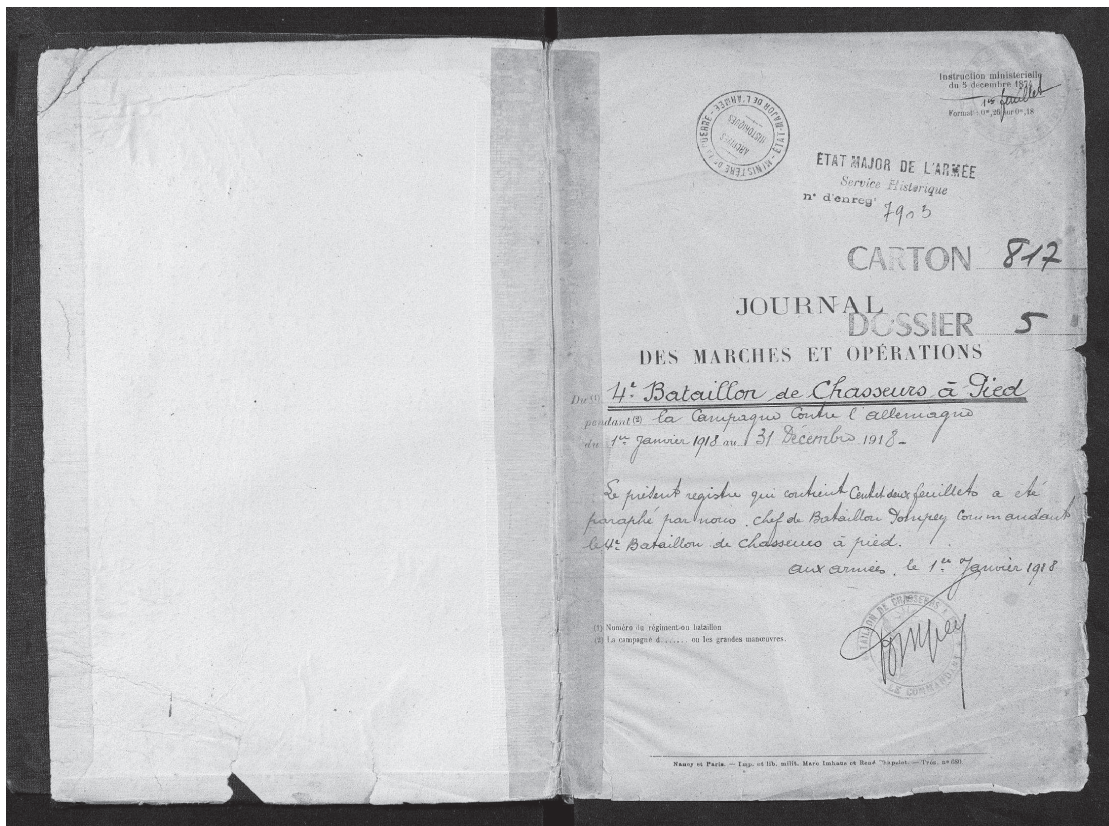 Instruction ministérielle
du 5 décembre 1874
1er feuillet
Format : 0m,26 sur 0m,18
MINISTÈRE DE LA GUERRE - ETAT-MAJOR DE L'ARMÉE -
ARCHIVES
HISTORIQUES
ETAT MAJOR DE L'ARMÉE
Service Historique
n° d'enregt 7903
CARTON 817
JOURNAL
DOSSIER 5
DES MARCHES ET OPÉRATIONS
Du (1) 4e Bataillon de Chasseurs à Pied
pendant (2) la Campagne Contre l'allemagne
du 1er Janvier 1918 au 31 Décembre 1918-
Le présent registre qui contient Cent et deux feuillets a été
paraphé par nous, chef de Bataillon Pompey Commandant
le 4e Bataillon de Chasseurs à pied.
aux armées, le 1er Janvier 1918
BATAILLON DE CHASSEURS À
LE COMMANDANT
Pompey
(1) Numéro du régiment ou bataillon
(2) La campagne d...... ou les grandes manœuvres.
Nancy et Paris. — Imp. et lib. milit. Marc Imhaus et René Chapelot. — Tréc. n° 681